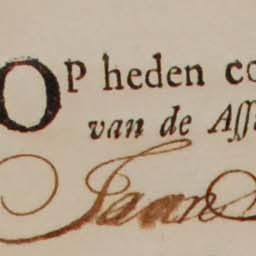 OP heden co
van de Aſſu
Jaan